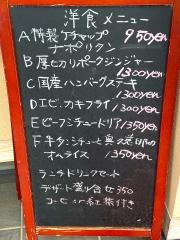 洋食メニュー
A 特製ケチャップ 950yen
ナポリタン
B 厚切りポークジンジャー
1300yen
C 国産ハンバーグステーキ
1300yen
D エビ、カキフライ 1300yen
E ビーフシチュードリア 1350yen
F 牛タンシチューと
オムライス 1350yen
ランチドリンクセット
デザート盛り合せ 350
コーヒー or 紅茶付き